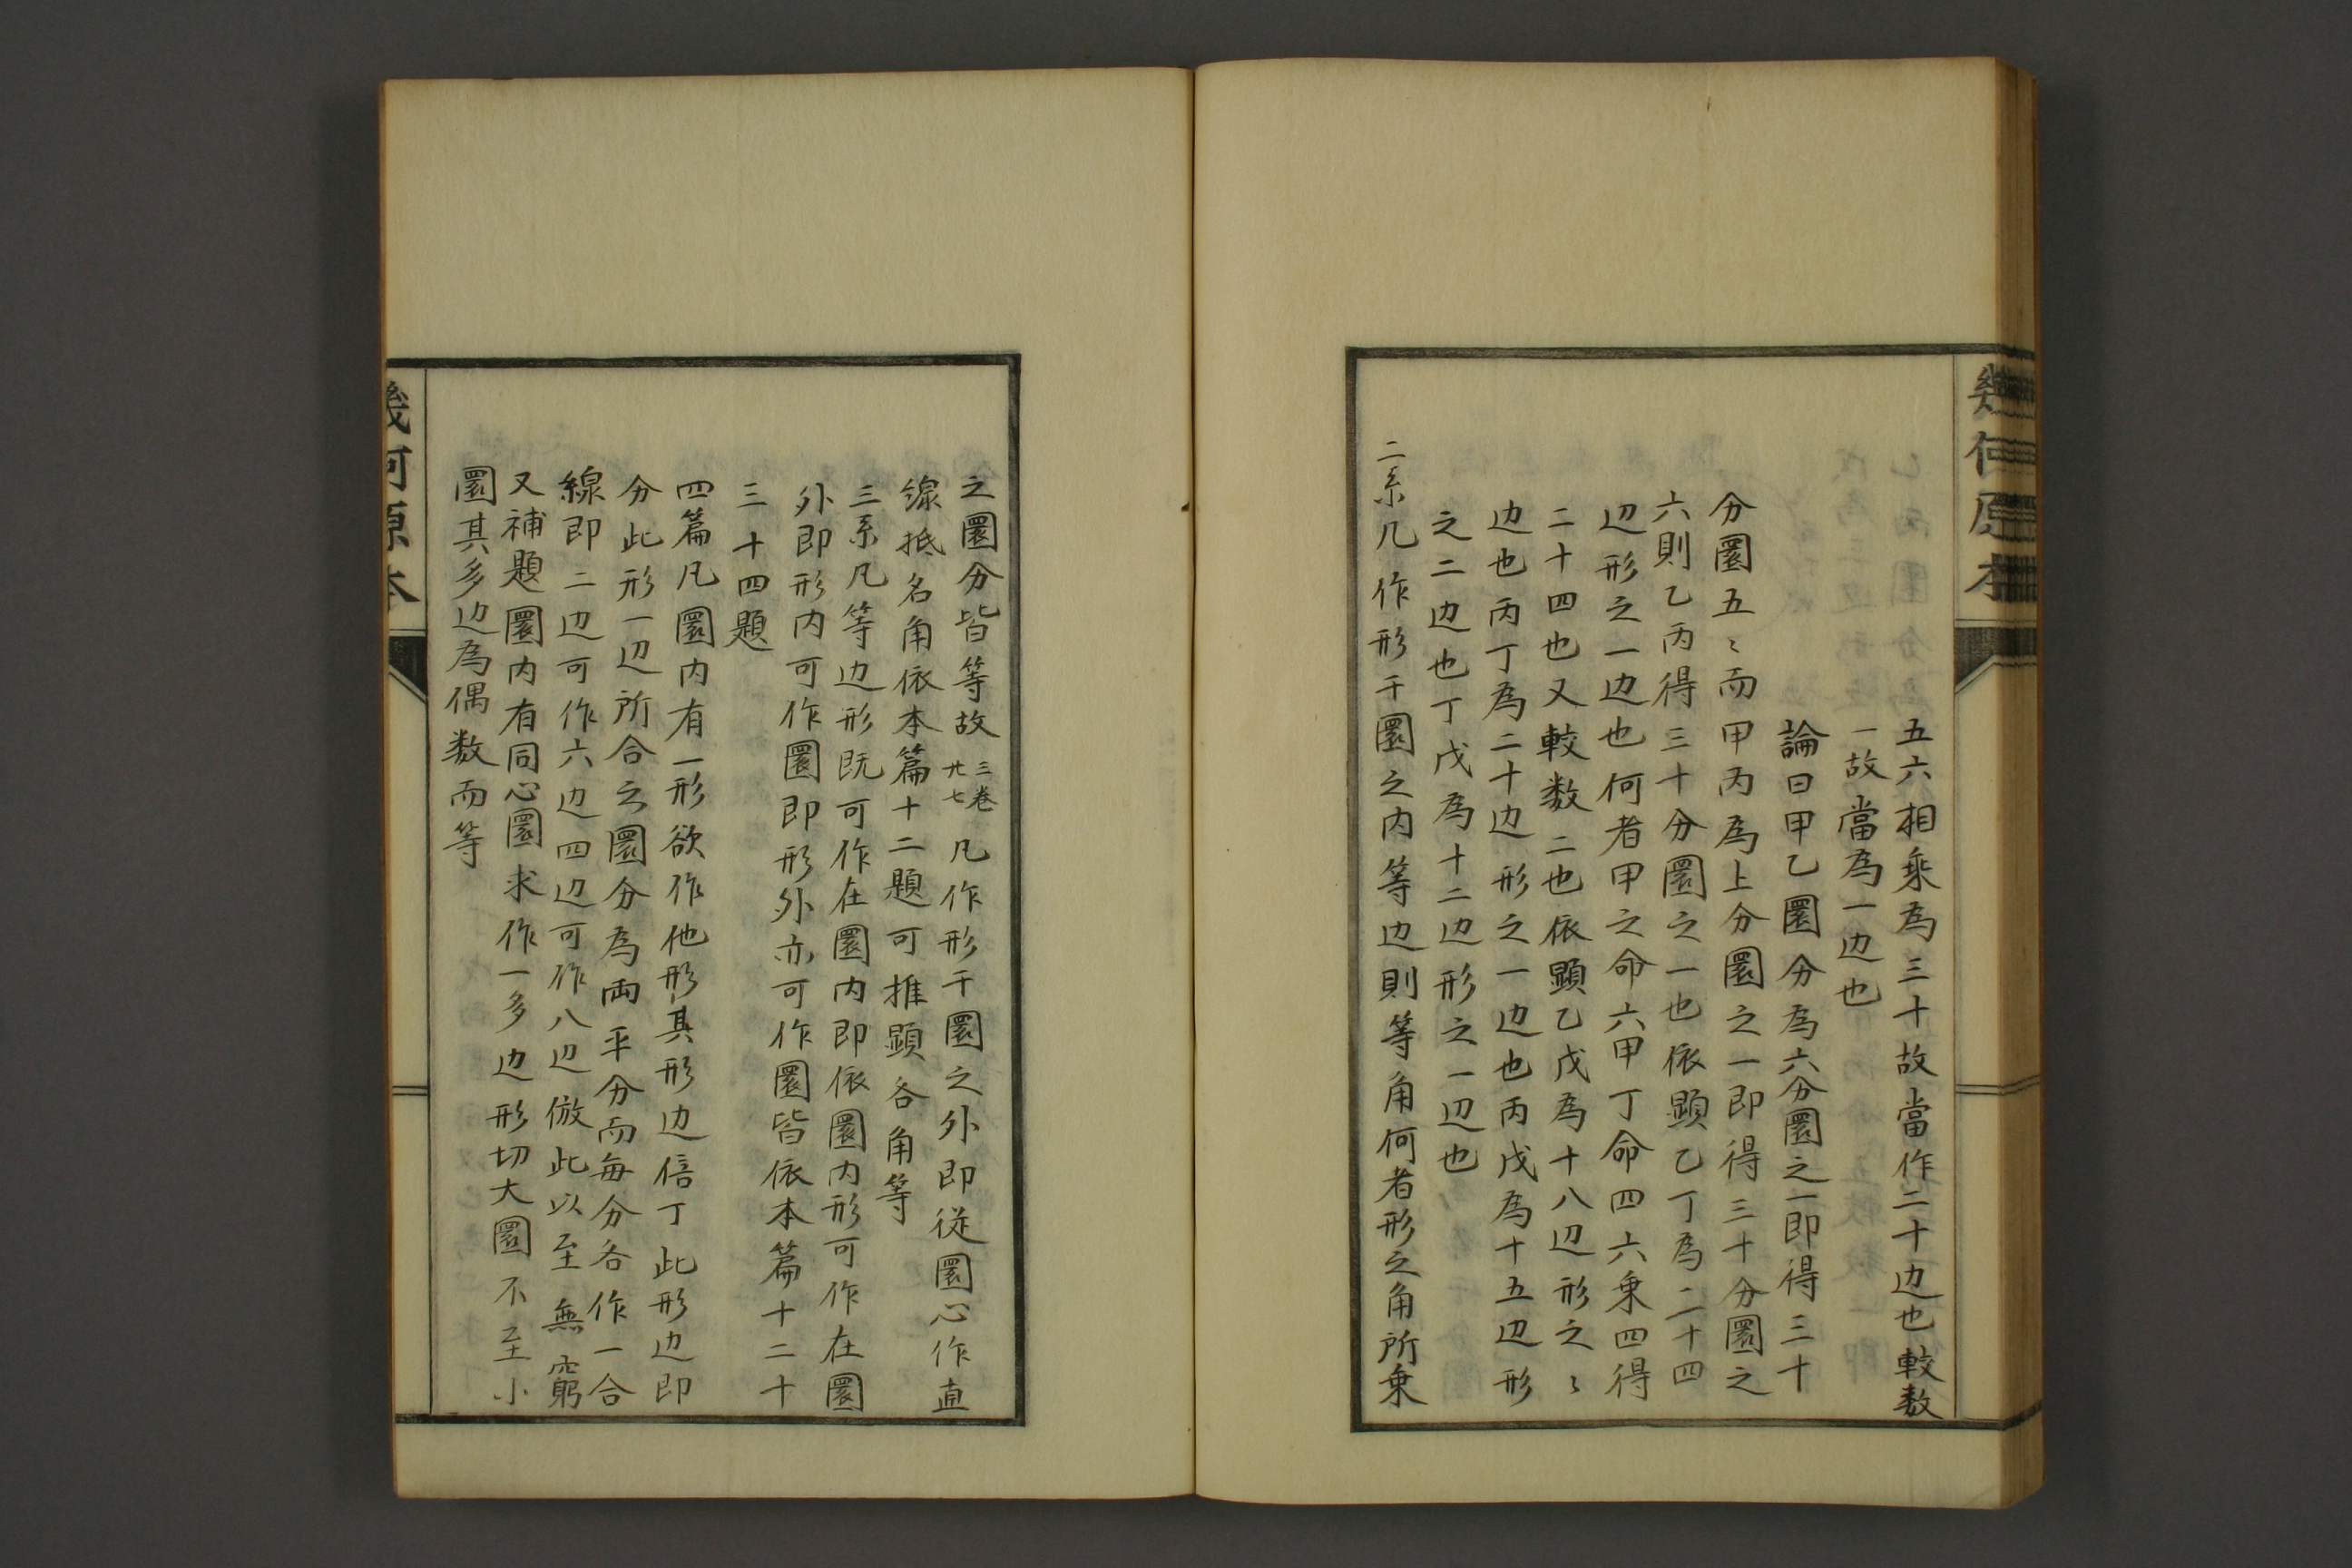 幾何原本
五六相乘為三十故當作二十边也較数
一故當為一边也
論曰甲乙圜分為六分圜之一即得三十
分圜五〻而甲丙為上分圜之一即得三十分圜之
六則乙丙得三十分圜之一也依顕乙丁為二十四
边形之一边也何者甲之命六甲丁命四六乗四得
二十四也又較数二也依顕乙戊為十八边形之〻
边也丙丁為二十边形之一边也丙戊為十五边形
之二边也丁戊為十二边形之一边也
二系凡作形干圜之内等边則等角何者形之角所乗
之圜分皆等故三卷廿七凡作形干圜之外即従圜心作直
線抵名角依本篇十二題可推顕各角等
三系凡等边形既可作在圜内即依圜内形可作在圜
外即形内可作圜即形外亦可作圜皆依本篇十二十
三十四題
四篇凡圜内有一形欲作他形其形边倍丁此形边即
分此形一边所合之圜分為両平分而毎分各作一合
線即二边可作六边四边可作八边倣此以至無窮
又補題圜内有同心圜求作一多边形切大圜不至小
圜其多边為偶数而等
幾何原本